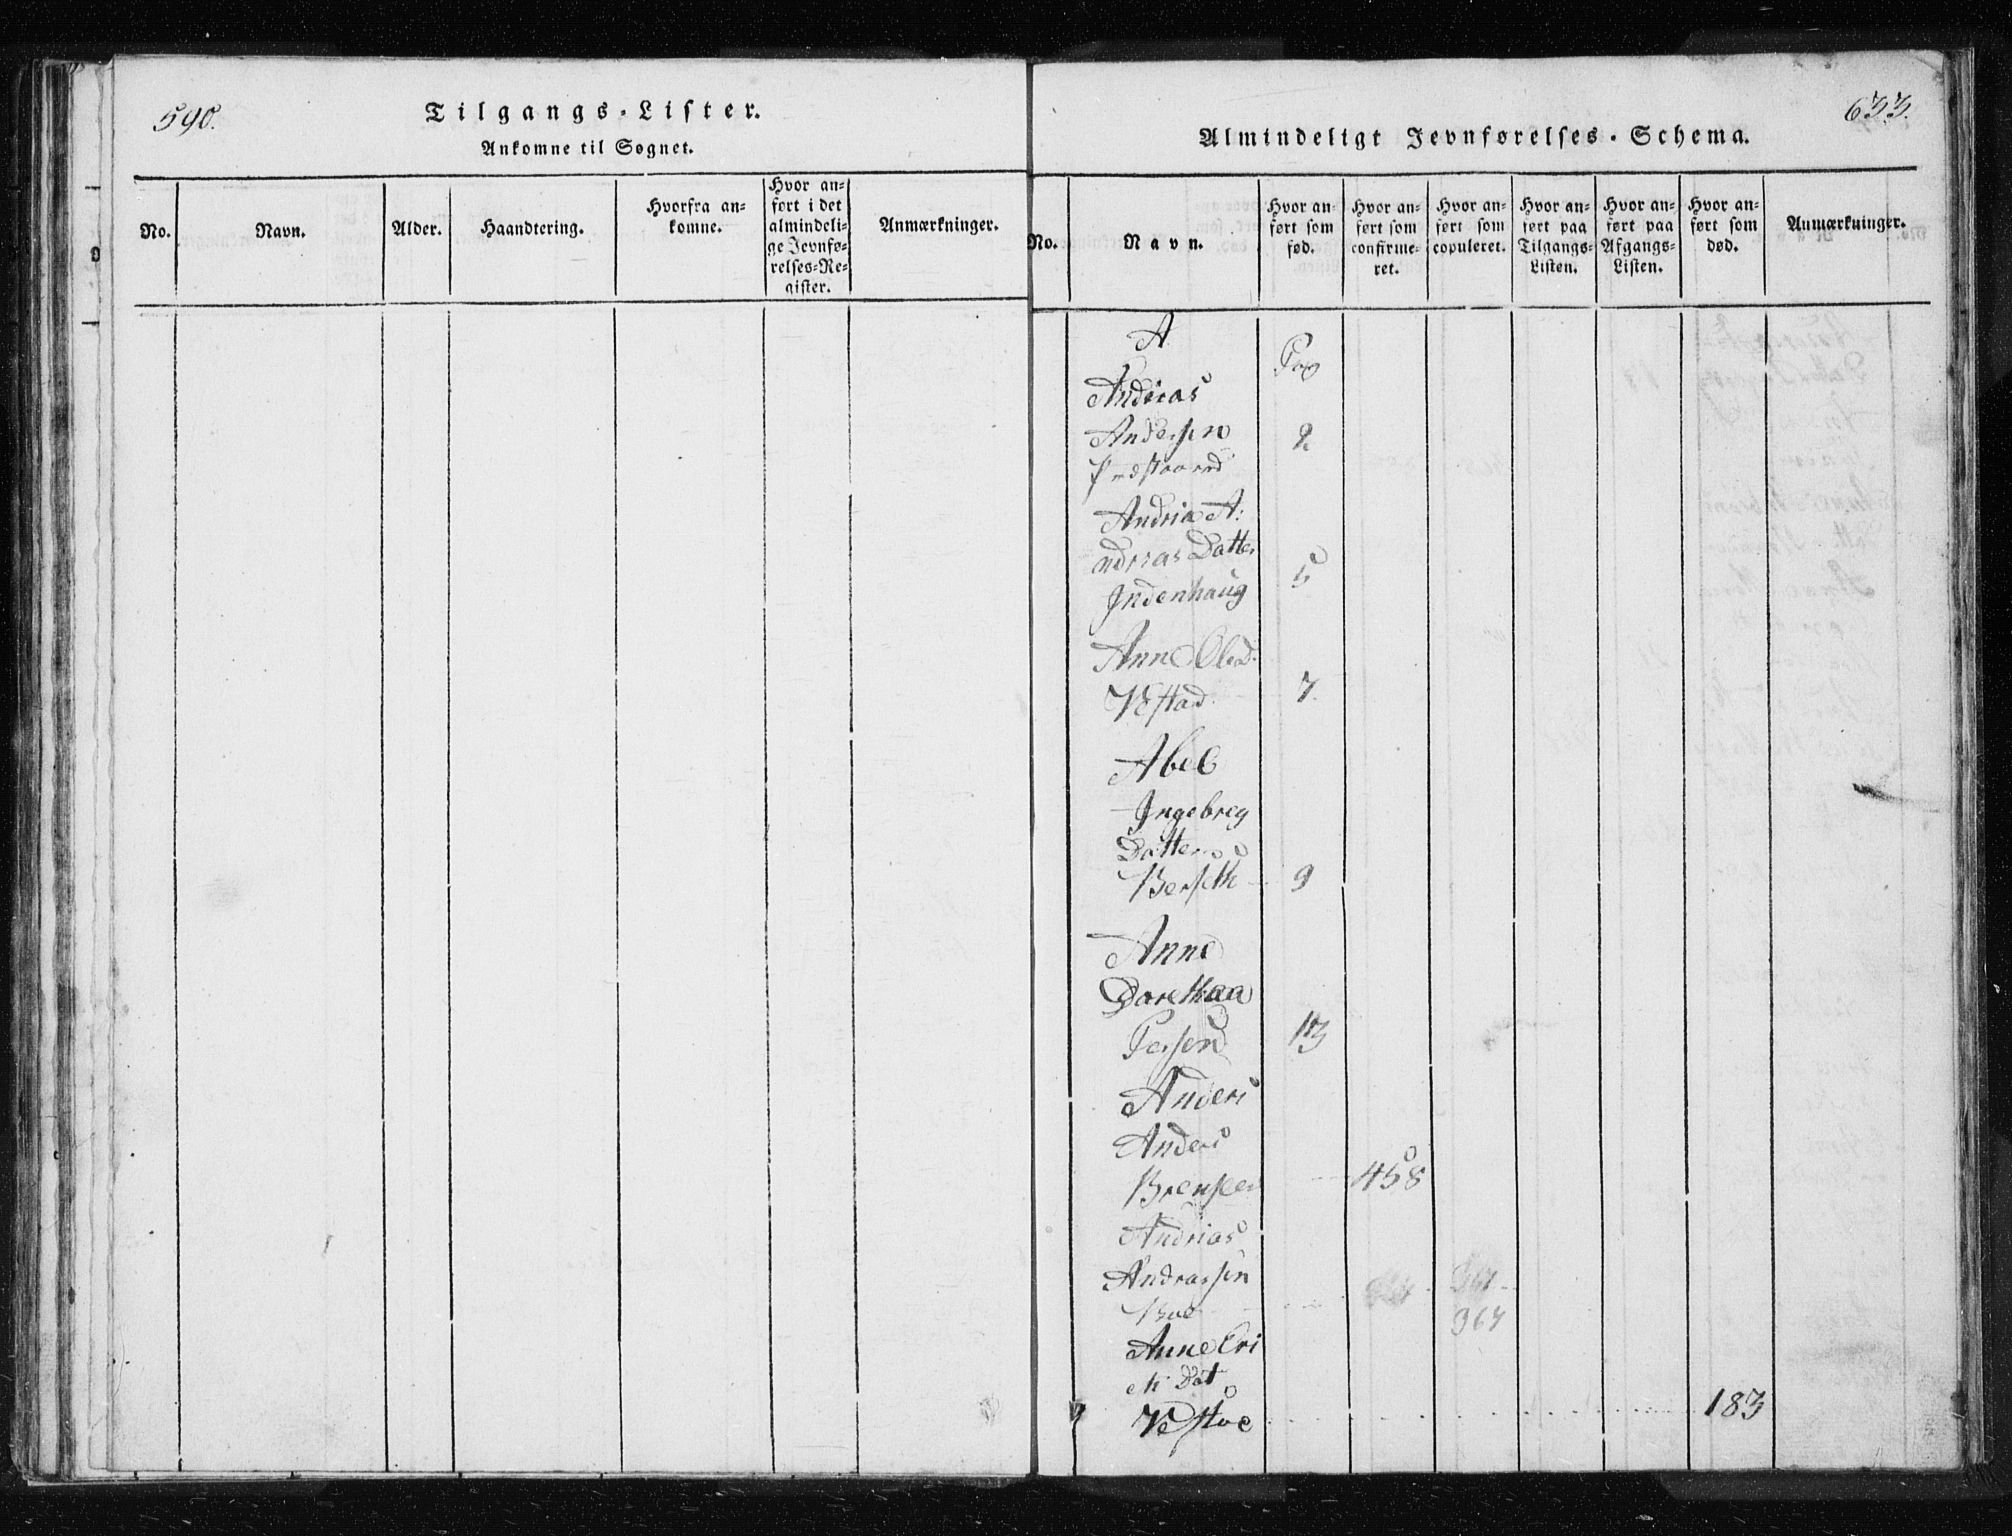 590.
Tilgangs-Lister.
Ankomne til Sognet.
No.
Navn.
Alder.
Haandtering.
Hvorfra an-
komne.
Hvor an-
ført i det
almindeli-
ge Jevnfø-
relses-Re-
gister.
Anmærkninger.
633.
Almindeligt Jevnførelses-Schema.
No.
Navn.
Hvor an-
ført som
fød.
Hvor an-
ført som
confirme-
ret.
Hvor an-
ført som
copuleret.
Hvor an-
ført paa
Tilgangs-
Listen.
Hvor an-
ført paa
Afgangs-
Listen.
Hvor an-
ført som
død.
Anmærkninger.
A
Pag
Andrias
Andersen 2
Andria A:
ndrias Datter
Indenhaug 5
Anne Olsd.
Vestad 7
Abel
Ingebreg
Datter
Berseth 9
Anne
Dorethaa
Persen 13
Anders
Anders
458
Andrias
Andrassen
Boe 367
Anne Eri
ch Dat
183